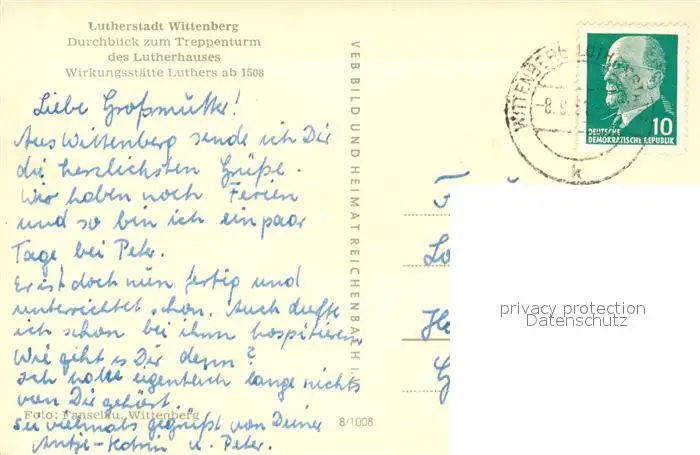 Lutherstadt Wittenberg
Durchblick zum Treppenturm
des Lutherhauses
Wirkungsstätte Luthers ab 1508
Liebe Großmutter!
Aus Wittenberg sende ich Dir
die herzlichsten Grüße.
Wir haben noch Ferien
und so bin ich ein paar
Tage bei Peter.
Er ist doch nun fertig und
unterrichtet schon. Auch durfte
ich schon bei ihm hospitieren.
Wie geht es Dir denn?
Ich habe eigentlich lange nichts
von Dir gehört.
Foto: Fanselau, Wittenberg
8/1008
Sei vielmals gegrüßt von Deiner
Antje-Katrin u. Peter.
VEB BILD UND HEIMAT REICHENBACH I. V.
WITTENBERG LUTHERSTADT
k
10
DEUTSCHE
DEMOKRATISCHE REPUBLIK
privacy protection
Datenschutz